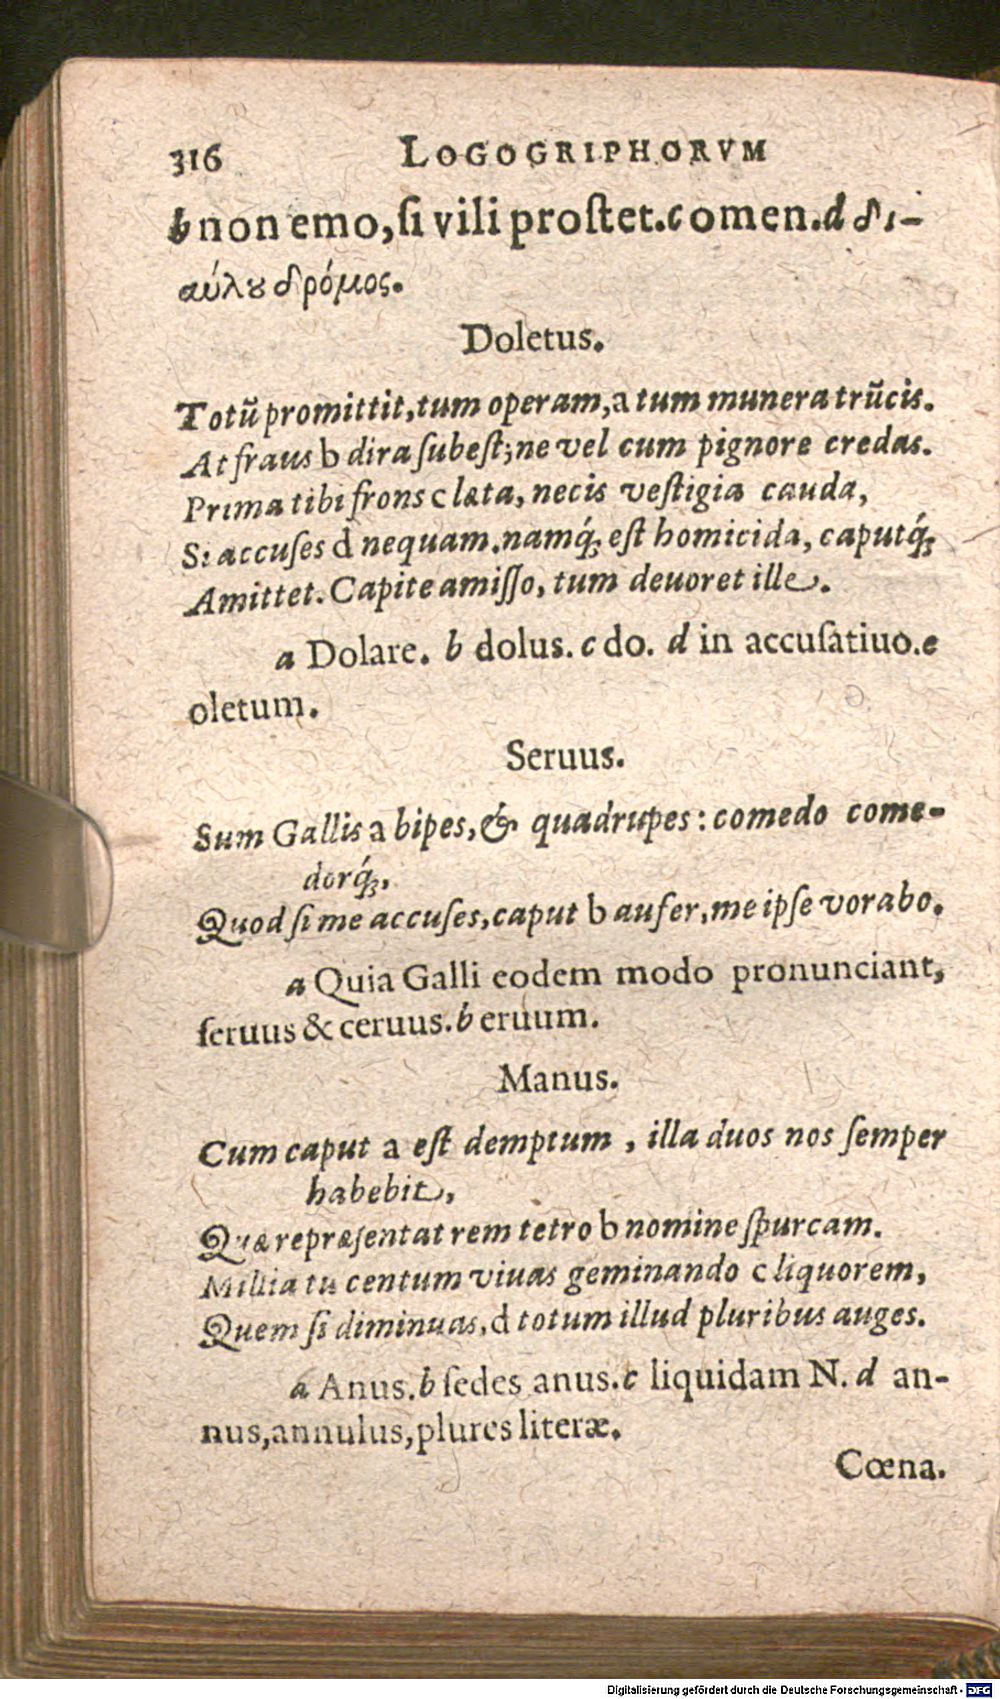 316 LOGOGRIPHORVM
b non emo, ſi vili proſtet. c omen. d δι-
αύλȣ δρόμος.
Doletus.
Totũ promittit, tum operam, a tum munera trũcis.
At fraus b dira ſubeſt; ne vel cum pignore credas.
Prima tibi frons c lata, necis veſtigia cauda,
Si accuſes d nequam. namq́; eſt homicida, caputq́;
Amittet. Capite amiſſo, tum deuoret ille.
a Dolare. b dolus. c do. d in accuſatiuo. e
oletum.
Seruus.
Sum Gallis a bipes, & quadrupes: comedo come-
dorq́;,
Quod ſi me accuſes, caput b aufer, me ipſe vorabo.
a Quia Galli eodem modo pronunciant,
ſeruus & ceruus. b eruum.
Manus.
Cum caput a eſt demptum, illa duos nos ſemper
habebit,
Quæ repræſentat rem tetro b nomine ſpurcam.
Millia tu centum viuas geminando c liquorem,
Quem ſi diminuas, d totum illud pluribus auges.
a Anus. b ſedes anus. c liquidam N. d an-
nus, annulus, plures literæ.
Cœna.
Digitalisierung gefördert durch die Deutsche Forschungsgemeinschaft - DFG